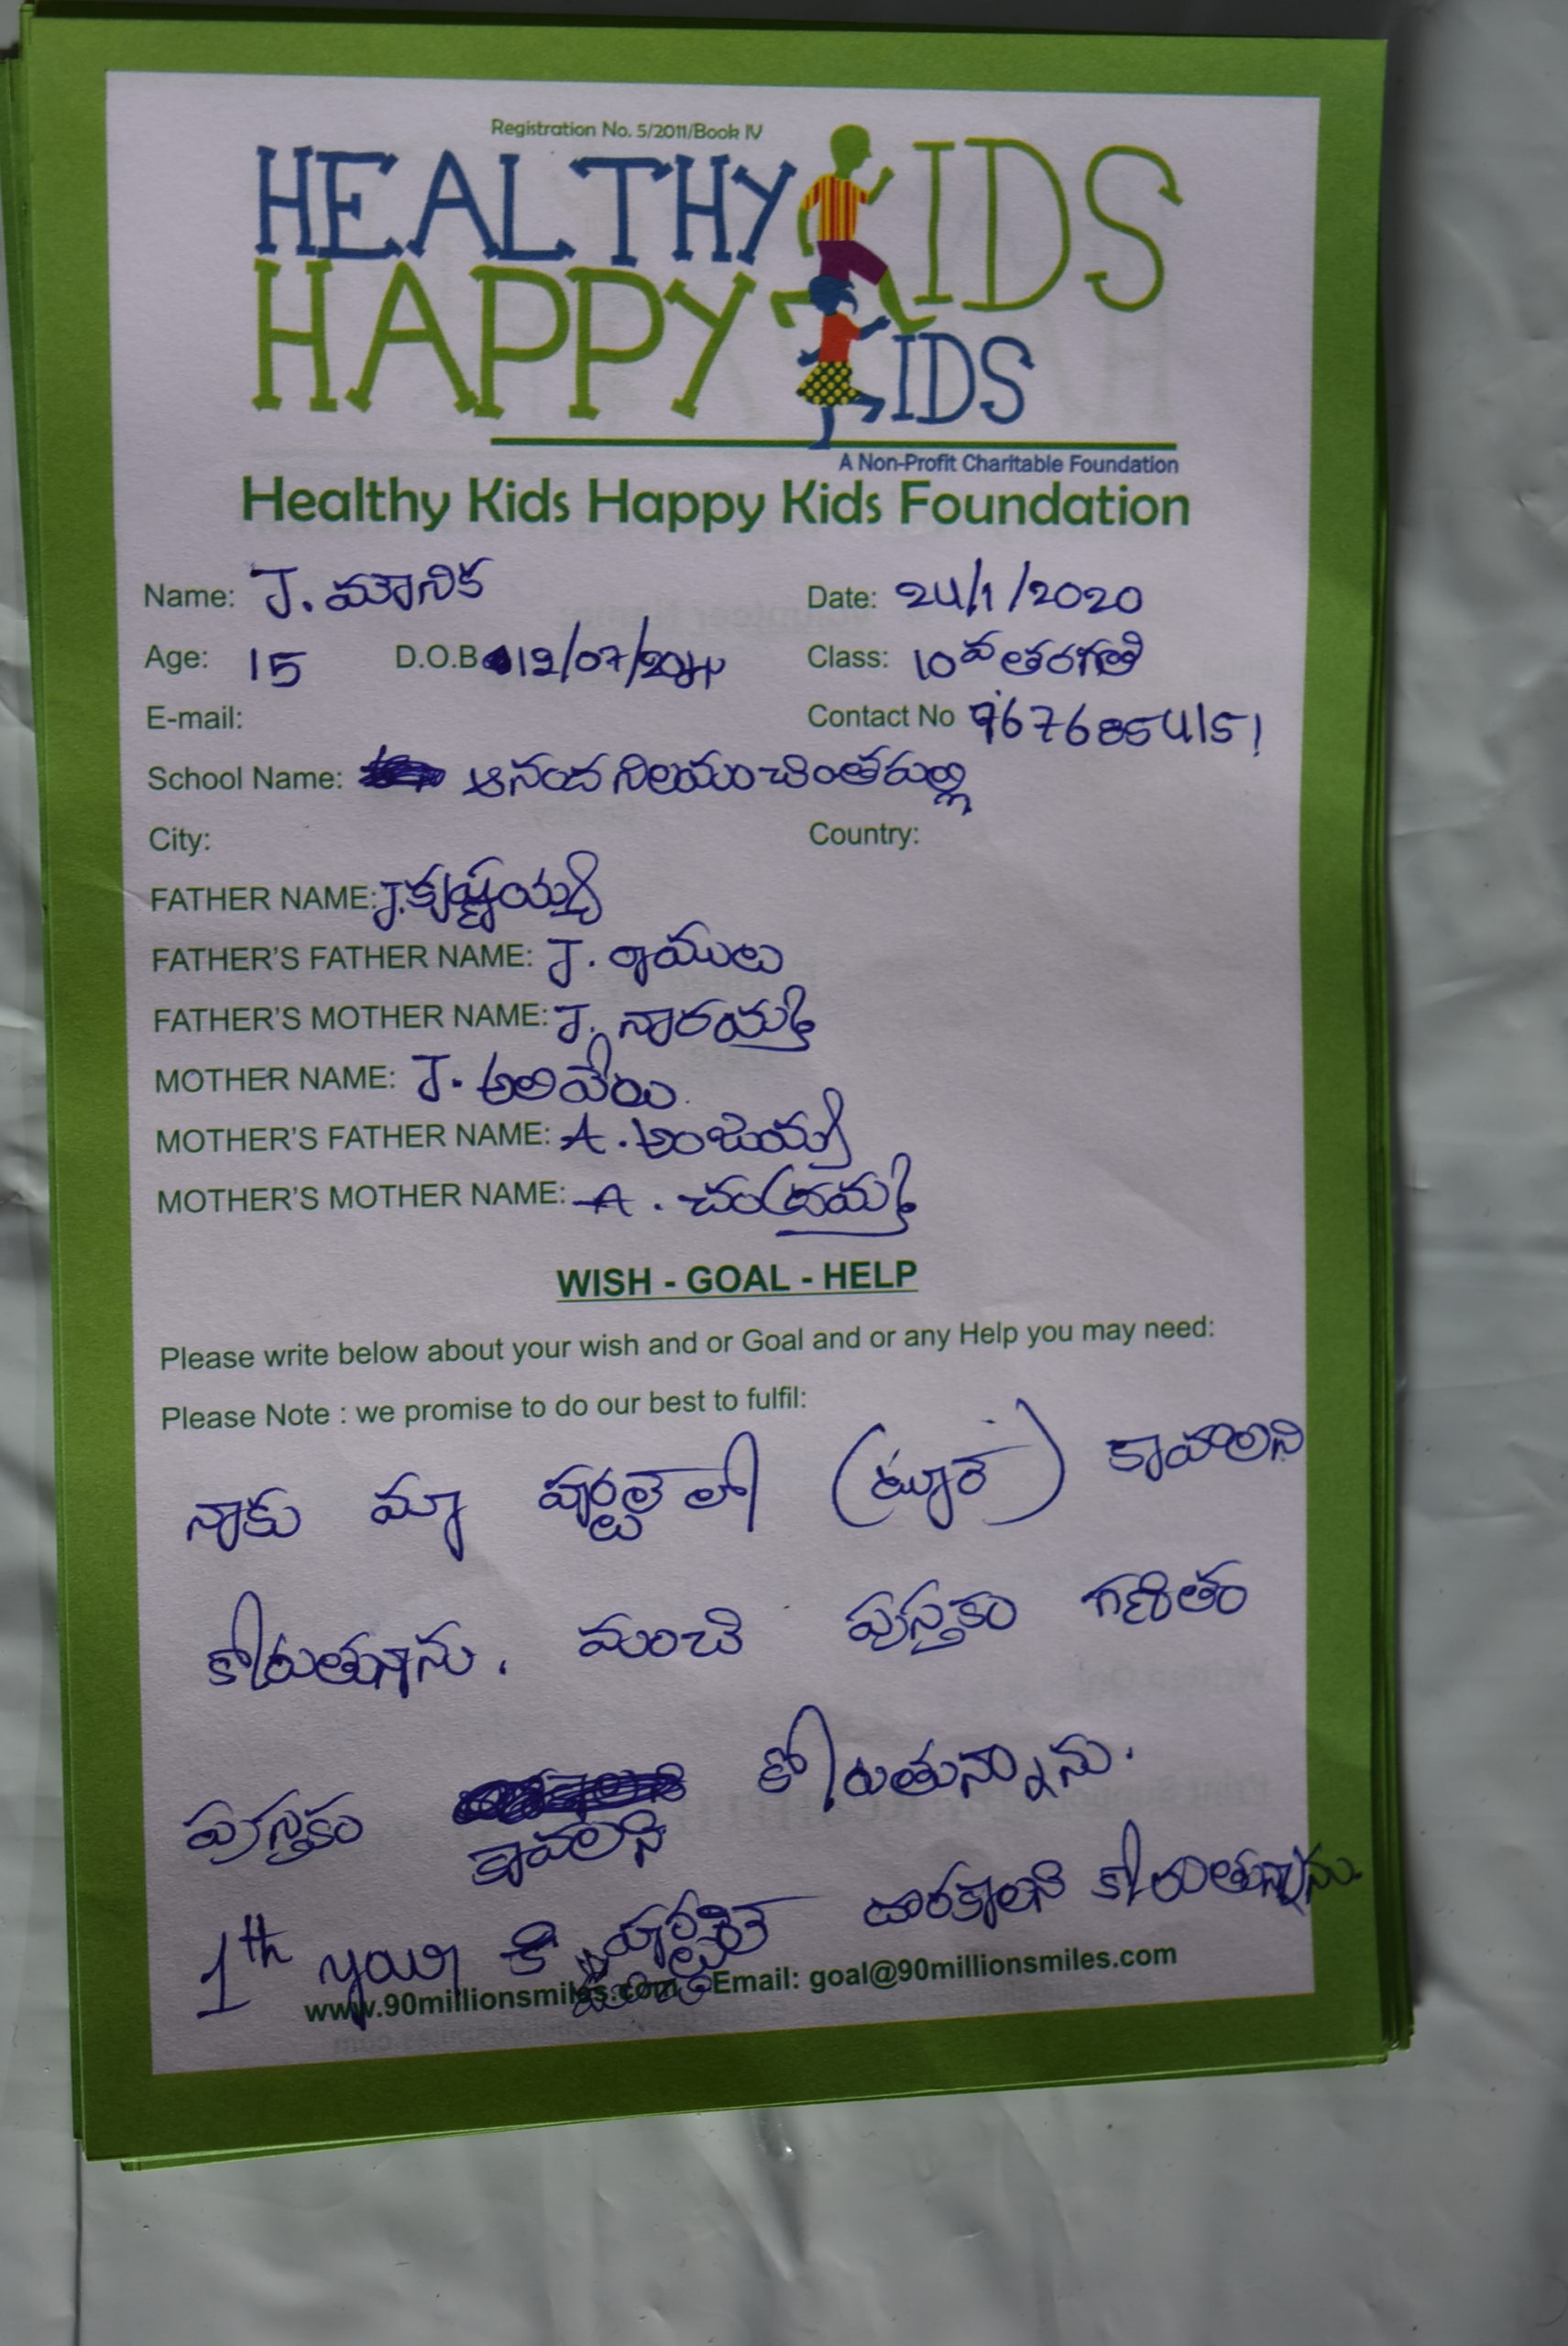 Registration No. 5/2011/Book IV
HEALTHY KIDS
HAPPY KIDS
A Non-Profit Charitable Foundation
Healthy Kids Happy Kids Foundation
Name: J. మౌనిక Date: 24/1/2020
Age: 15 D.O.B 12/07/ Class: 10వ తరగతి
E-mail: Contact No 9676854151
School Name: ఆనంద నిలయం చింతపల్లి
City: Country:
FATHER NAME: J. కృష్ణయ్య
FATHER'S FATHER NAME: J. రాములు
FATHER'S MOTHER NAME: J. నారమ్మ
MOTHER NAME: J. అలివేలు
MOTHER'S FATHER NAME: A. అంజయ్య
MOTHER'S MOTHER NAME: A. చంద్రమ్మ
WISH - GOAL - HELP
Please write below about your wish and or Goal and or any Help you may need:
Please Note : we promise to do our best to fulfil:
నాకు మా లో కావాలని
కోరుతున్నాను. మంచి పుస్తకం గణితం
పుస్తకం కావలని కోరుతున్నాను.
1th year కి కోరుతున్నాను.
www.90millionsmiles.com Email: goal@90millionsmiles.com